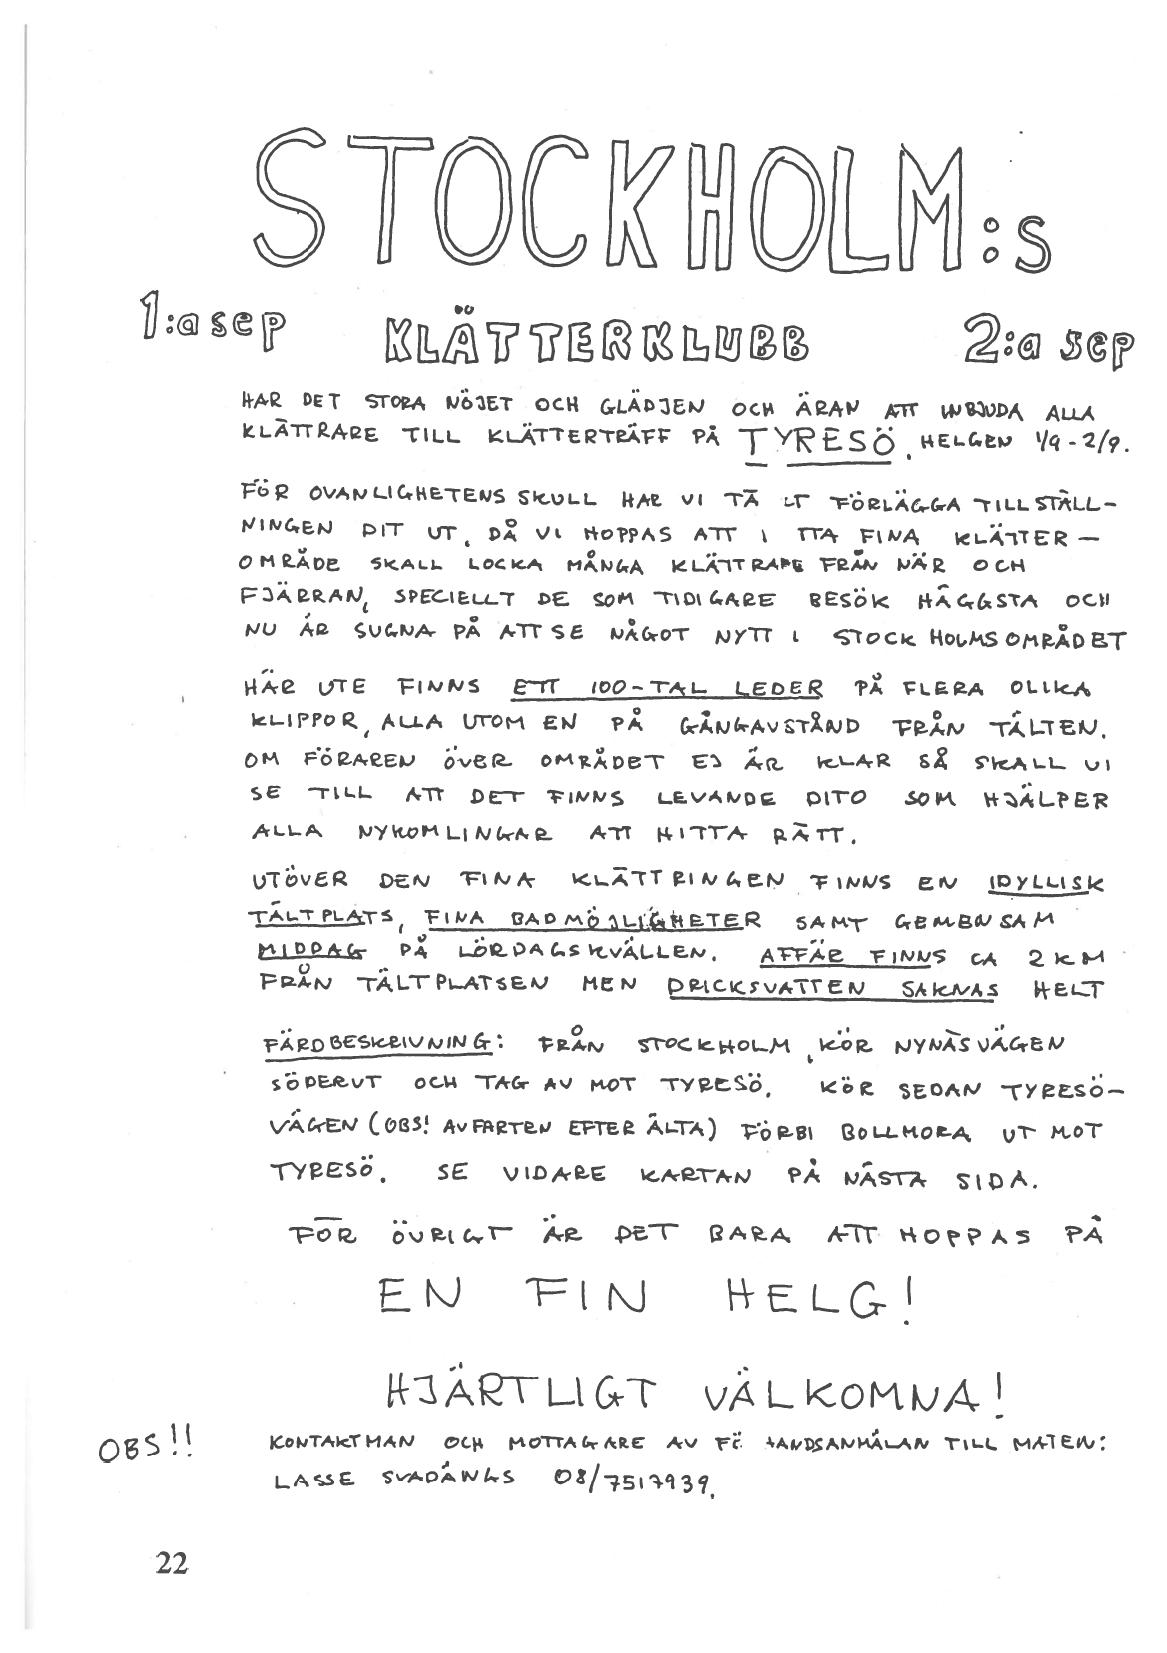 STOCKHOLM:s
1:a sep KLÄTTERKLUBB 2:a sep
HAR DET STORA NÖJET OCH GLÄDJEN OCH ÄRAN ATT INBJUDA ALLA
KLÄTTRARE TILL KLÄTTERTRÄFF PÅ TYRESÖ, HELGEN 1/9-2/9.
FÖR OVANLIGHETENS SKULL HAR VI FÖRLÄGGA TILLSTÄLL-
NINGEN DIT UT, DÅ VI HOPPAS ATT FINA KLÄTTER-
OMRÅDE SKALL LOCKA MÅNGA KLÄTTRARE FRÅN NÄR OCH
FJÄRRAN, SPECIELLT DE SOM TIDIGARE BESÖK HÄGGSTA OCH
NU ÄR SUGNA PÅ ATT SE NÅGOT NYTT I STOCKHOLMSOMRÅDET
HÄR UTE FINNS ETT 100-TAL LEDER PÅ FLERA OLIKA
KLIPPOR, ALLA UTOM EN PÅ GÅNGAVSTÅND FRÅN TÄLTEN.
OM FÖRAREN ÖVER OMRÅDET EJ ÄR KLAR SÅ SKALL VI
SE TILL ATT DET FINNS LEVANDE DITO SOM HJÄLPER
ALLA NYKOMLINGAR ATT HITTA RÄTT.
UTÖVER DEN FINA KLÄTTRINGEN FINNS EN IDYLLISK
TÄLTPLATS, FINA BADMÖJLIGHETER SAMT GEMENSAM
MIDDAG PÅ LÖRDAGSKVÄLLEN. AFFÄR FINNS CA 2 KM
FRÅN TÄLTPLATSEN MEN DRICKSVATTEN SAKNAS HELT
FÄRDBESKRIVNING: FRÅN STOCKHOLM, KÖR NYNÄSVÄGEN
SÖDERUT OCH TAG AV MOT TYRESÖ. KÖR SEDAN TYRESÖ-
VÄGEN (OBS! AVFARTEN EFTER ÄLTA) FÖRBI BOLLMORA UT MOT
TYRESÖ. SE VIDARE KARTAN PÅ NÄSTA SIDA.
FÖR ÖVRIGT ÄR DET BARA ATT HOPPAS PÅ
EN FIN HELG!
HJÄRTLIGT VÄLKOMNA!
OBS!! KONTAKTMAN OCH MOTTAGARE AV TILL MATEN:
LASSE SVADÄNGS 08/7517939.
22